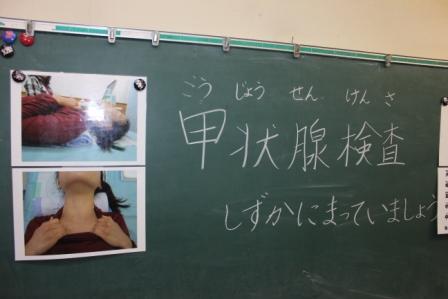 こう じょう せん けん さ
甲状腺検査
しずかにまっていましょう